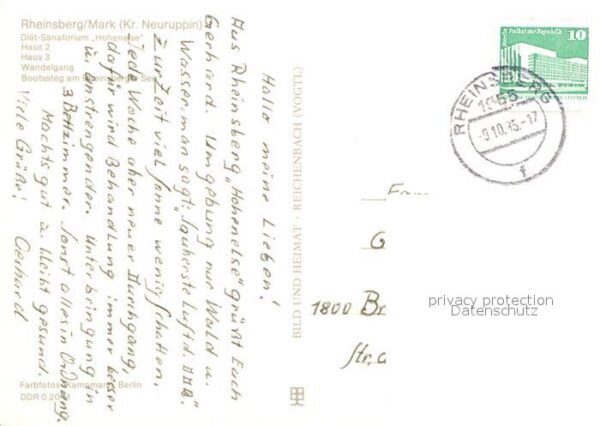 Rheinsberg/Mark (Kr. Neuruppin)
Diät-Sanatorium „Hohenelse"
Haus 2
Haus 3
Wandelgang
Bootssteg am Rheinsberger See
Hallo meine Lieben!
Aus Rheinsberg „Hohenelse" grüßt Euch
Gerhard. Umgebung nur Wald u.
Wasser, man sagt: „sauberste Luft d. DDR."
Zur Zeit viel Sonne wenig Schatten.
Jede Woche aber neuer Durchgang,
dafür wird Behandlung immer besser
u. anstrengender. Unterbringung in
3 Bettzimmer. Sonst alles in Ordnung.
Machts gut u. bleibt gesund.
Viele Grüße! Gerhard
Farbfotos: Kampmann, Berlin
DDR 0,20 M
BILD UND HEIMAT · REICHENBACH (VOGTL)
Berlin Palast der Republik
10
RHEINSBERG
1955
-9.10.85.-17
f
G
1800 Br
Str. d
privacy protection
Datenschutz